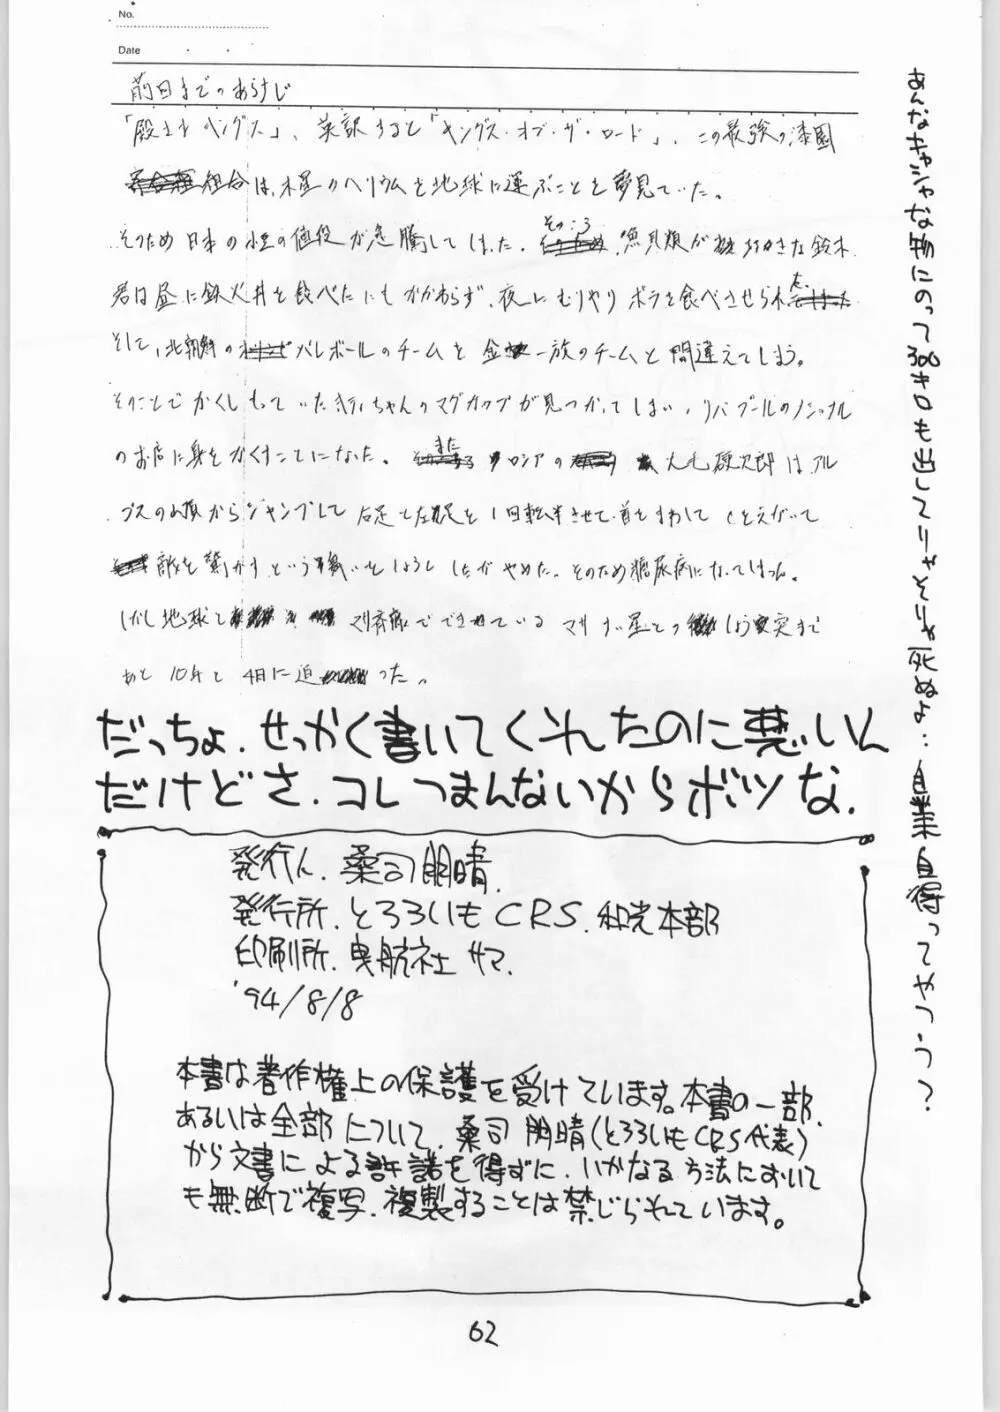 No.
Date
前日までのあらすじ
「殿さまキングス」、英訳すると「キングス・オブ・ザ・ロード」、この最強の漆園
組合は、木星のヘリウムを地球に運ぶことを夢見ていた。
そのため日本の小豆の値段が急騰してしまった。そのころ、魚貝類が大好きな鈴木
君は昼に鉄火丼を食べたにもかかわらず、夜にむりやりボラを食べさせられた。
そして、北朝鮮のバレーボールのチームを金一族のチームと間違えてしまう。
そのことでかくしもっていたキティちゃんのマグカップが見つかってしまい、リバプールの
のお店に身をかくすことになった。また ロシアの 大毛 次郎はアル
プスの山頂からジャンプして右足と左足を1回転半させて、首をまわして
敵を驚かすという戦いをしようとしたがやめた。そのため糖尿病になってしまった。
しかし地球と でできている 星との しょう突まで
あと10年と4日に迫った。
だっちょ.せっかく書いてくれたのに悪いん
だけどさ.コレつまんないからボツな.
発行人.桑司朋晴.
発行所.とろろいも CRS.和光本部
印刷所.曳航社サマ.
'94/8/8
本書は著作権上の保護を受けています。本書の一部.
あるいは全部について.桑司朋晴(とろろいもCRS代表)
から文書による許諾を得ずに.いかなる方法において
も無断で複写.複製することは禁じられています。
あんなキャシャな物にのって300キロも出してリャそりゃ死ぬよ…自業自得ってやつう?
62